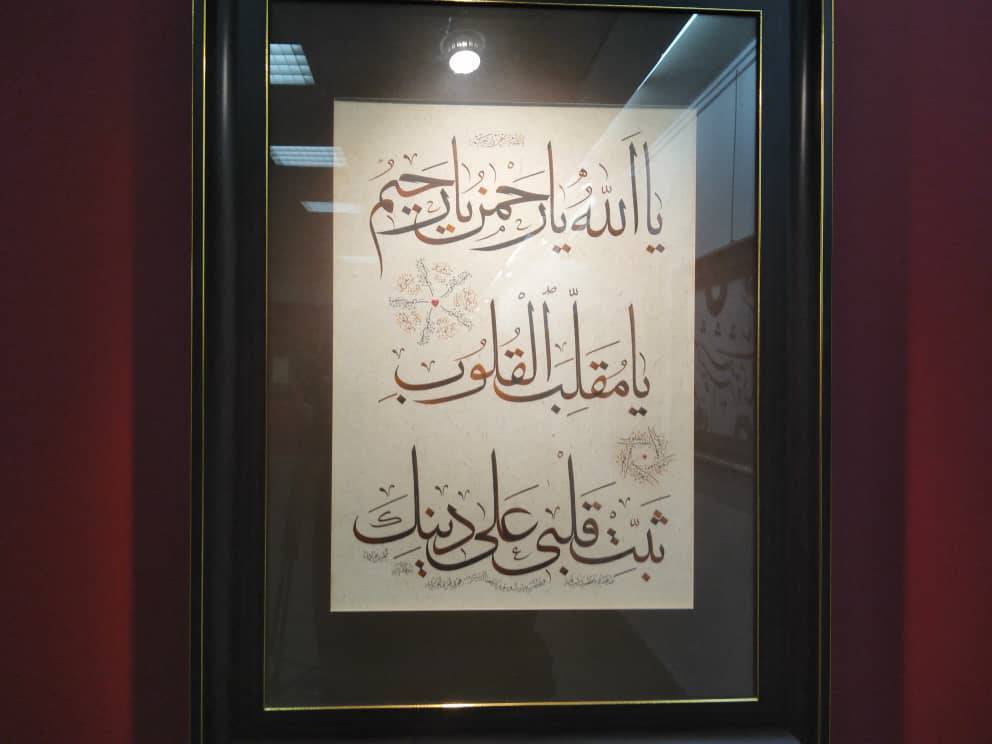 يَا اَللّٰهُ يَا رَحْمٰنُ يَا رَحيمُ
يَا مُقَلِّبَ الْقُلُوبِ
ثَبِّتْ قَلْبى عَلى دينِكَ